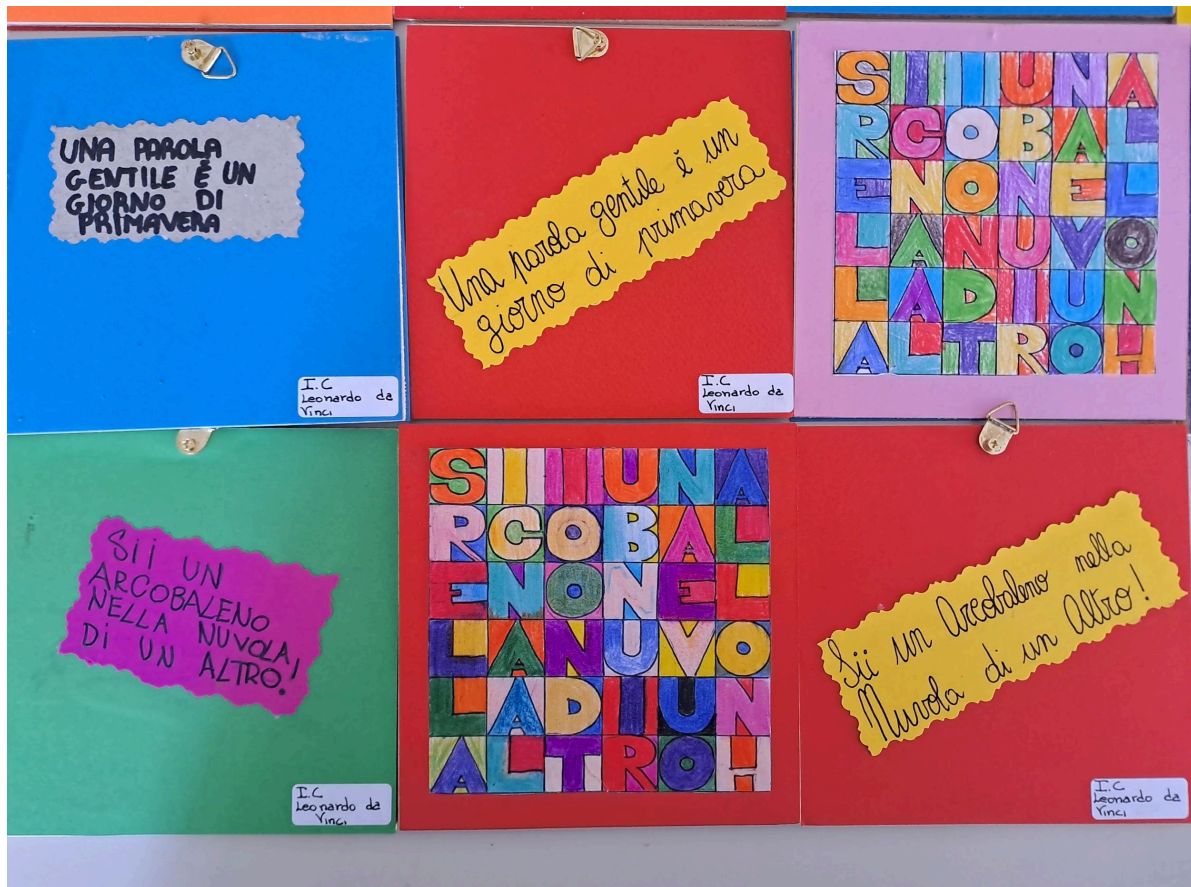 UNA PAROLA
GENTILE È UN
GIORNO DI
PRIMAVERA
I.C
Leonardo da
Vinci
Una parola gentile è un
giorno di primavera
I.C
Leonardo da
Vinci
SIIUNA
RCOBAL
ENONEL
LANUVO
LADIUN
ALTROH
Sii UN
ARCOBALENO
NELLA NUVOLA!
Di UN ALTRO.
I.C
Leonardo da
Vinci
SIIUNA
RCOBAL
ENONEL
LANUVO
LADIUN
ALTROH
Sii un Arcobaleno nella
Nuvola di un Altro!
I.C
Leonardo da
Vinci